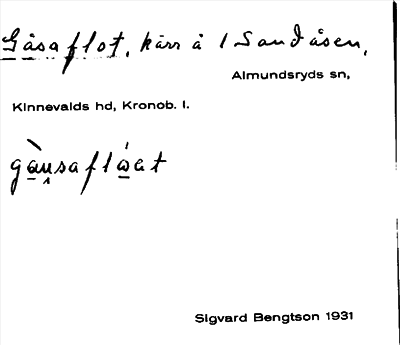 Gåsaflot, kärr å 1 Sandåsen,
Almundsryds sn,
Kinnevalds hd, Kronob. l.
gàu̯safló̲et
Sigvard Bengtson 1931